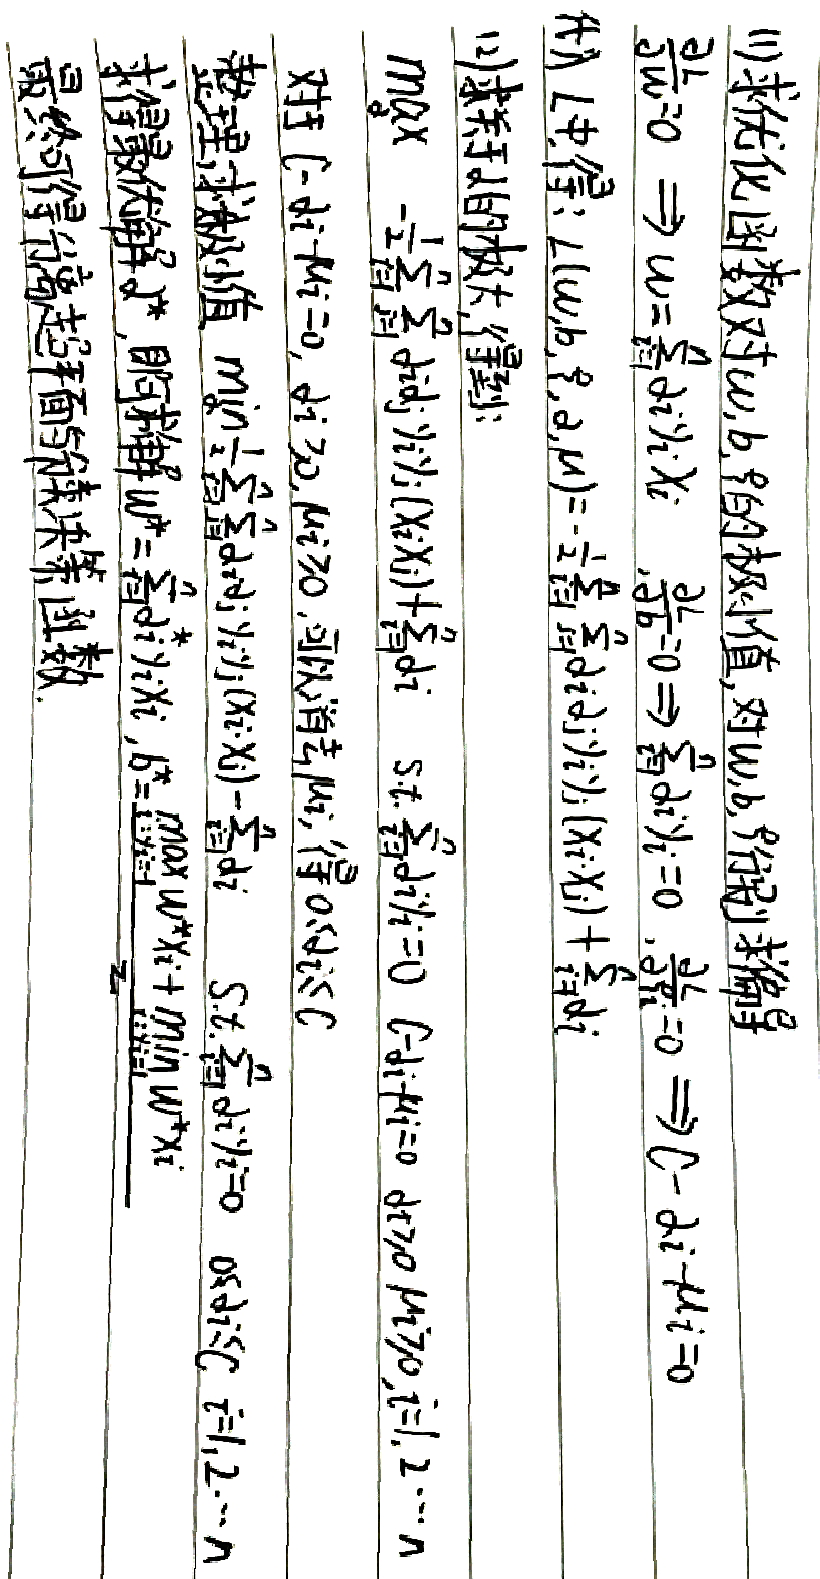 (1) 求优化函数对w,b,ξ的极小值,对w,b,ξ分别求偏导
∂L/∂w=0 ⇒ w=∑_{i=1}^{n}αiyixi . ∂L/∂b=0 ⇒ ∑_{i=1}^{n}αiyi=0 . ∂L/∂ξi=0 ⇒ C-αi-μi=0
代入L中得: L(w,b,ξ,α,μ)=-1/2∑_{i=1}^{n}∑_{j=1}^{n}αiαjyiyj(xi·xj)+∑_{i=1}^{n}αi
(2) 求关于α的极大,得到:
max_α -1/2∑_{i=1}^{n}∑_{j=1}^{n}αiαjyiyj(xi·xj)+∑_{i=1}^{n}αi s.t. ∑_{i=1}^{n}αiyi=0 C-αi-μi=0 αi≥0 μi≥0,i=1,2…n
对于C-αi-μi=0, αi≥0, μi≥0,可以消去μi,得0≤αi≤C
整理,求极小值 min_α 1/2∑_{i=1}^{n}∑_{j=1}^{n}αiαjyiyj(xi·xj)-∑_{i=1}^{n}αi s.t. ∑_{i=1}^{n}αiyi=0 0≤αi≤C i=1,2…n
求得最优解α*,即可求解w*=∑_{i=1}^{n}αi*yixi, b*=(max_{i:yi=-1}w*xi+min_{i:yi=1}w*xi)/2
最终可得分离超平面与分类决策函数.